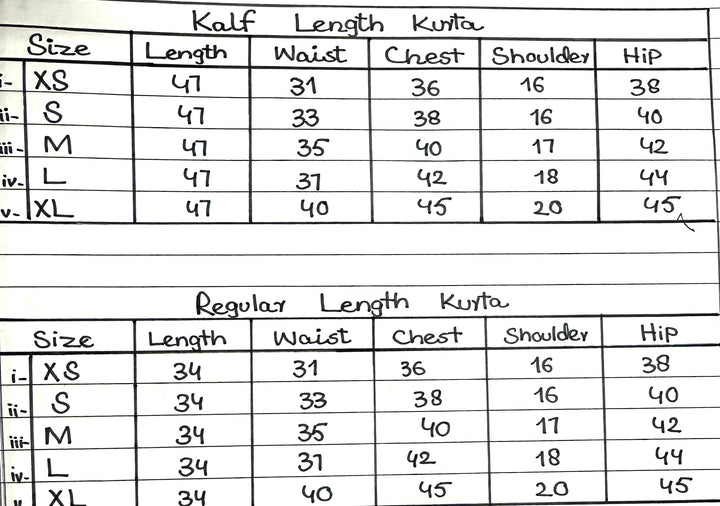 Kalf Length Kurta
Size Length Waist Chest Shoulder Hip
i- XS 47 31 36 16 38
ii- S 47 33 38 16 40
iii- M 47 35 40 17 42
iv- L 47 37 42 18 44
v- XL 47 40 45 20 45
Regular Length Kurta
Size Length Waist Chest Shoulder Hip
i- XS 34 31 36 16 38
ii- S 34 33 38 16 40
iii- M 34 35 40 17 42
iv- L 34 37 42 18 44
v XL 34 40 45 20 45